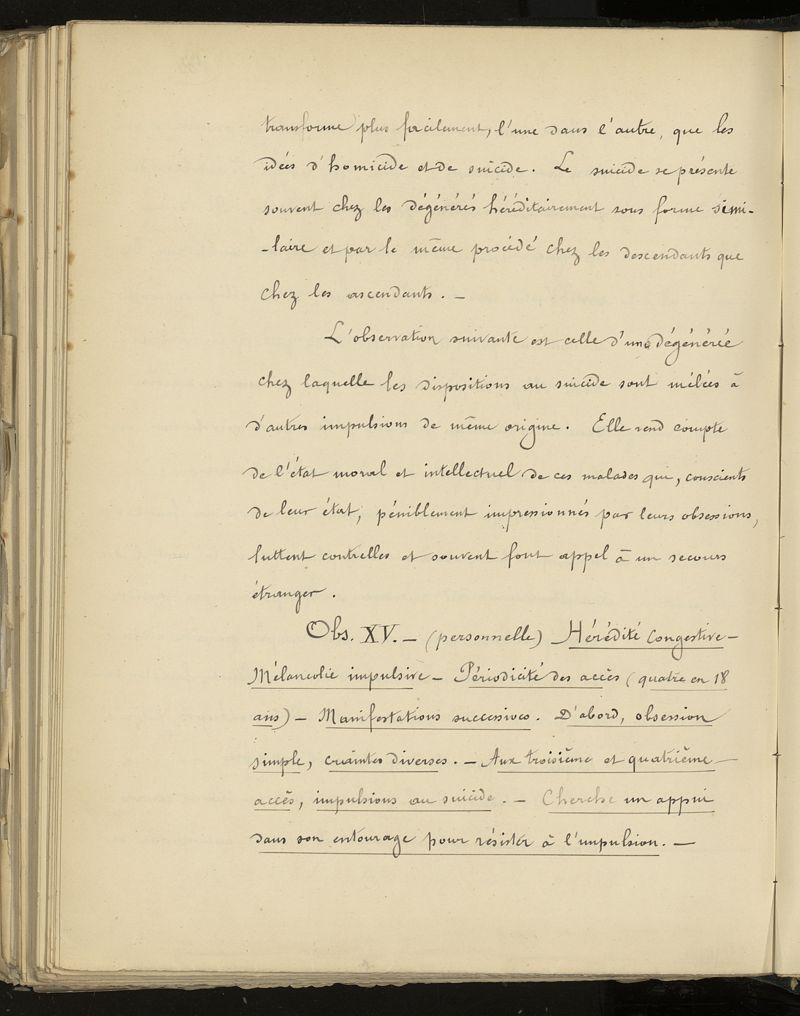 transforme plus facilement, l'une dans l'autre, que les
idées d'homicide et de suicide. Le suicide se présente
souvent chez les dégénérés héréditairement sous forme simi-
-laire et par le même procédé chez les descendants que
chez les ascendants. —
L'observation suivante est celle d'une dégénérée
chez laquelle les dispositions au suicide sont mêlées à
d'autres impulsions de même origine. Elle rend compte
de l'état moral et intellectuel de ces malades qui, conscients
de leur état, péniblement impressionnés par leurs obsessions,
luttent contr'elles et souvent font appel à un secours
étranger.
Obs. XV. — (personnelle) Hérédité congestive —
Mélancolie impulsive — Périodicité des accès (quatre en 18
ans) — Manifestations successives. D'abord, obsession
simple, craintes diverses. — Aux troisième et quatrième —
accès, impulsions au suicide. — Cherche un appui
dans son entourage pour résister à l'impulsion. —